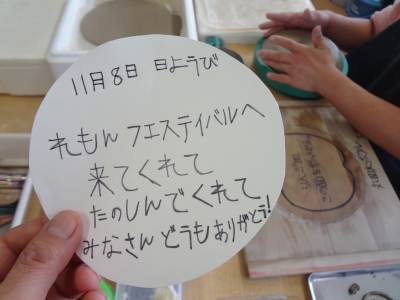 11月8日 日ようび
れもん フェスティバルへ
来てくれて
たのしんでくれて
みなさん どうもありがとう!